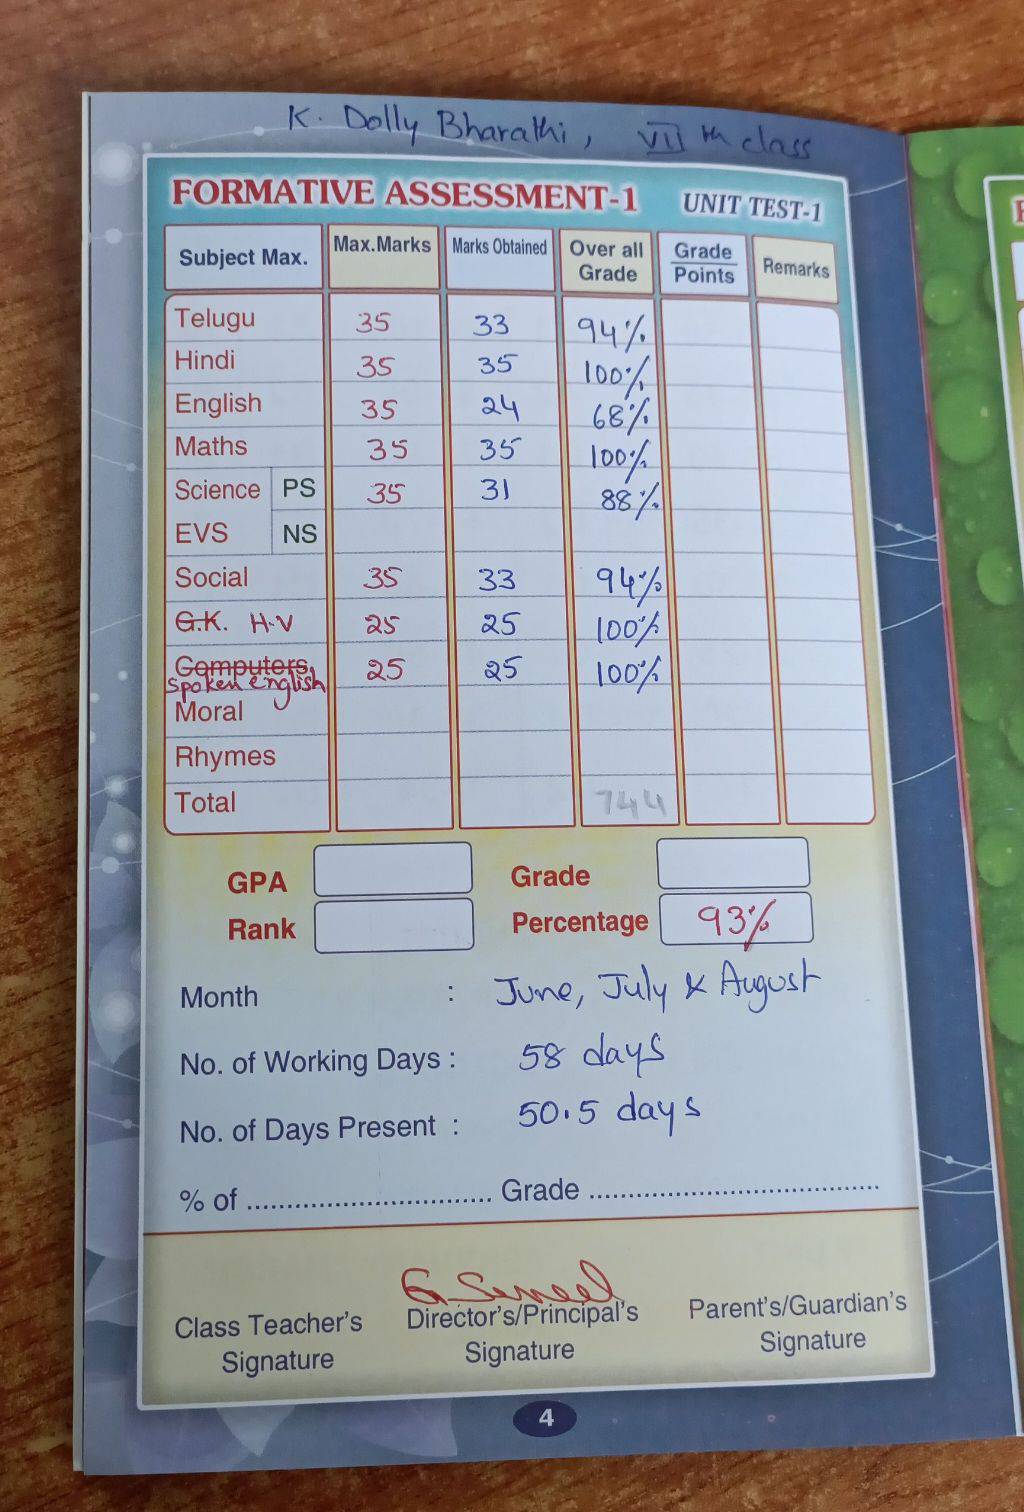 K. Dolly Bharathi, VII th class
FORMATIVE ASSESSMENT-1 UNIT TEST-1
Subject Max. Max.Marks Marks Obtained Over all Grade Grade Points Remarks
Telugu 35 33 94%
Hindi 35 35 100%
English 35 24 68%
Maths 35 35 100%
Science PS 35 31 88%
EVS NS
Social 35 33 94%
G.K. H.V 25 25 100%
Computers 25 25 100%
spoken english
Moral
Rhymes
Total 744
GPA Grade
Rank Percentage 93%
Month : June, July & August
No. of Working Days : 58 days
No. of Days Present : 50.5 days
% of ............................. Grade ....................................
Class Teacher's Signature
Director's/Principal's Signature
Parent's/Guardian's Signature
4